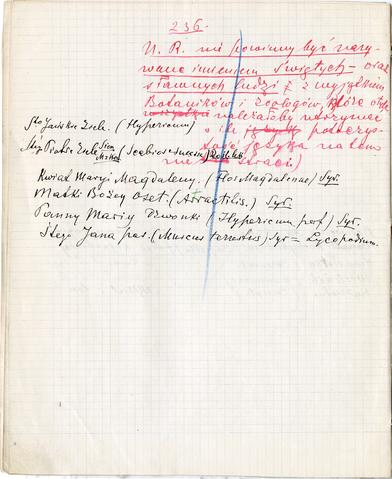 236.
N. R. nie powinny być nazy-
wane imieniem Świętych – oraz
sławnych ludzi z wyjątkiem
Botaników i Zoologów, które
należałoby utrzymać
o ile podtrzy-
języka na tem
nie straci)
Sto Jańskie Ziele. (Hypericum)
Śtej Piotra Ziele (Scabiosa succisa)
Kwiat Maryi Magdaleny. (Flos Magdalenae) Syr.
Matki Bożey Oset. (Atractilis.) Syr.
Panny Maryi Dzwonki (Hypericum perf) Syr.
Stego Jana pas. (Muscus terrestris) Syr = Lycopodium.